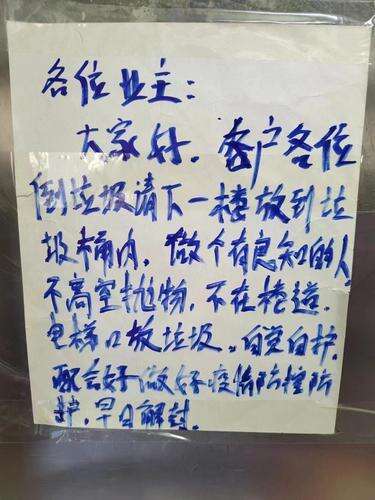 各位业主:
大家好.客户各位
倒垃圾请下一楼放到垃
圾桶内,做个有良知的人
不高空抛物,不在楼道.
电梯口放垃圾。自觉自护.
配合好做好疫情防控防
护,早日解封.